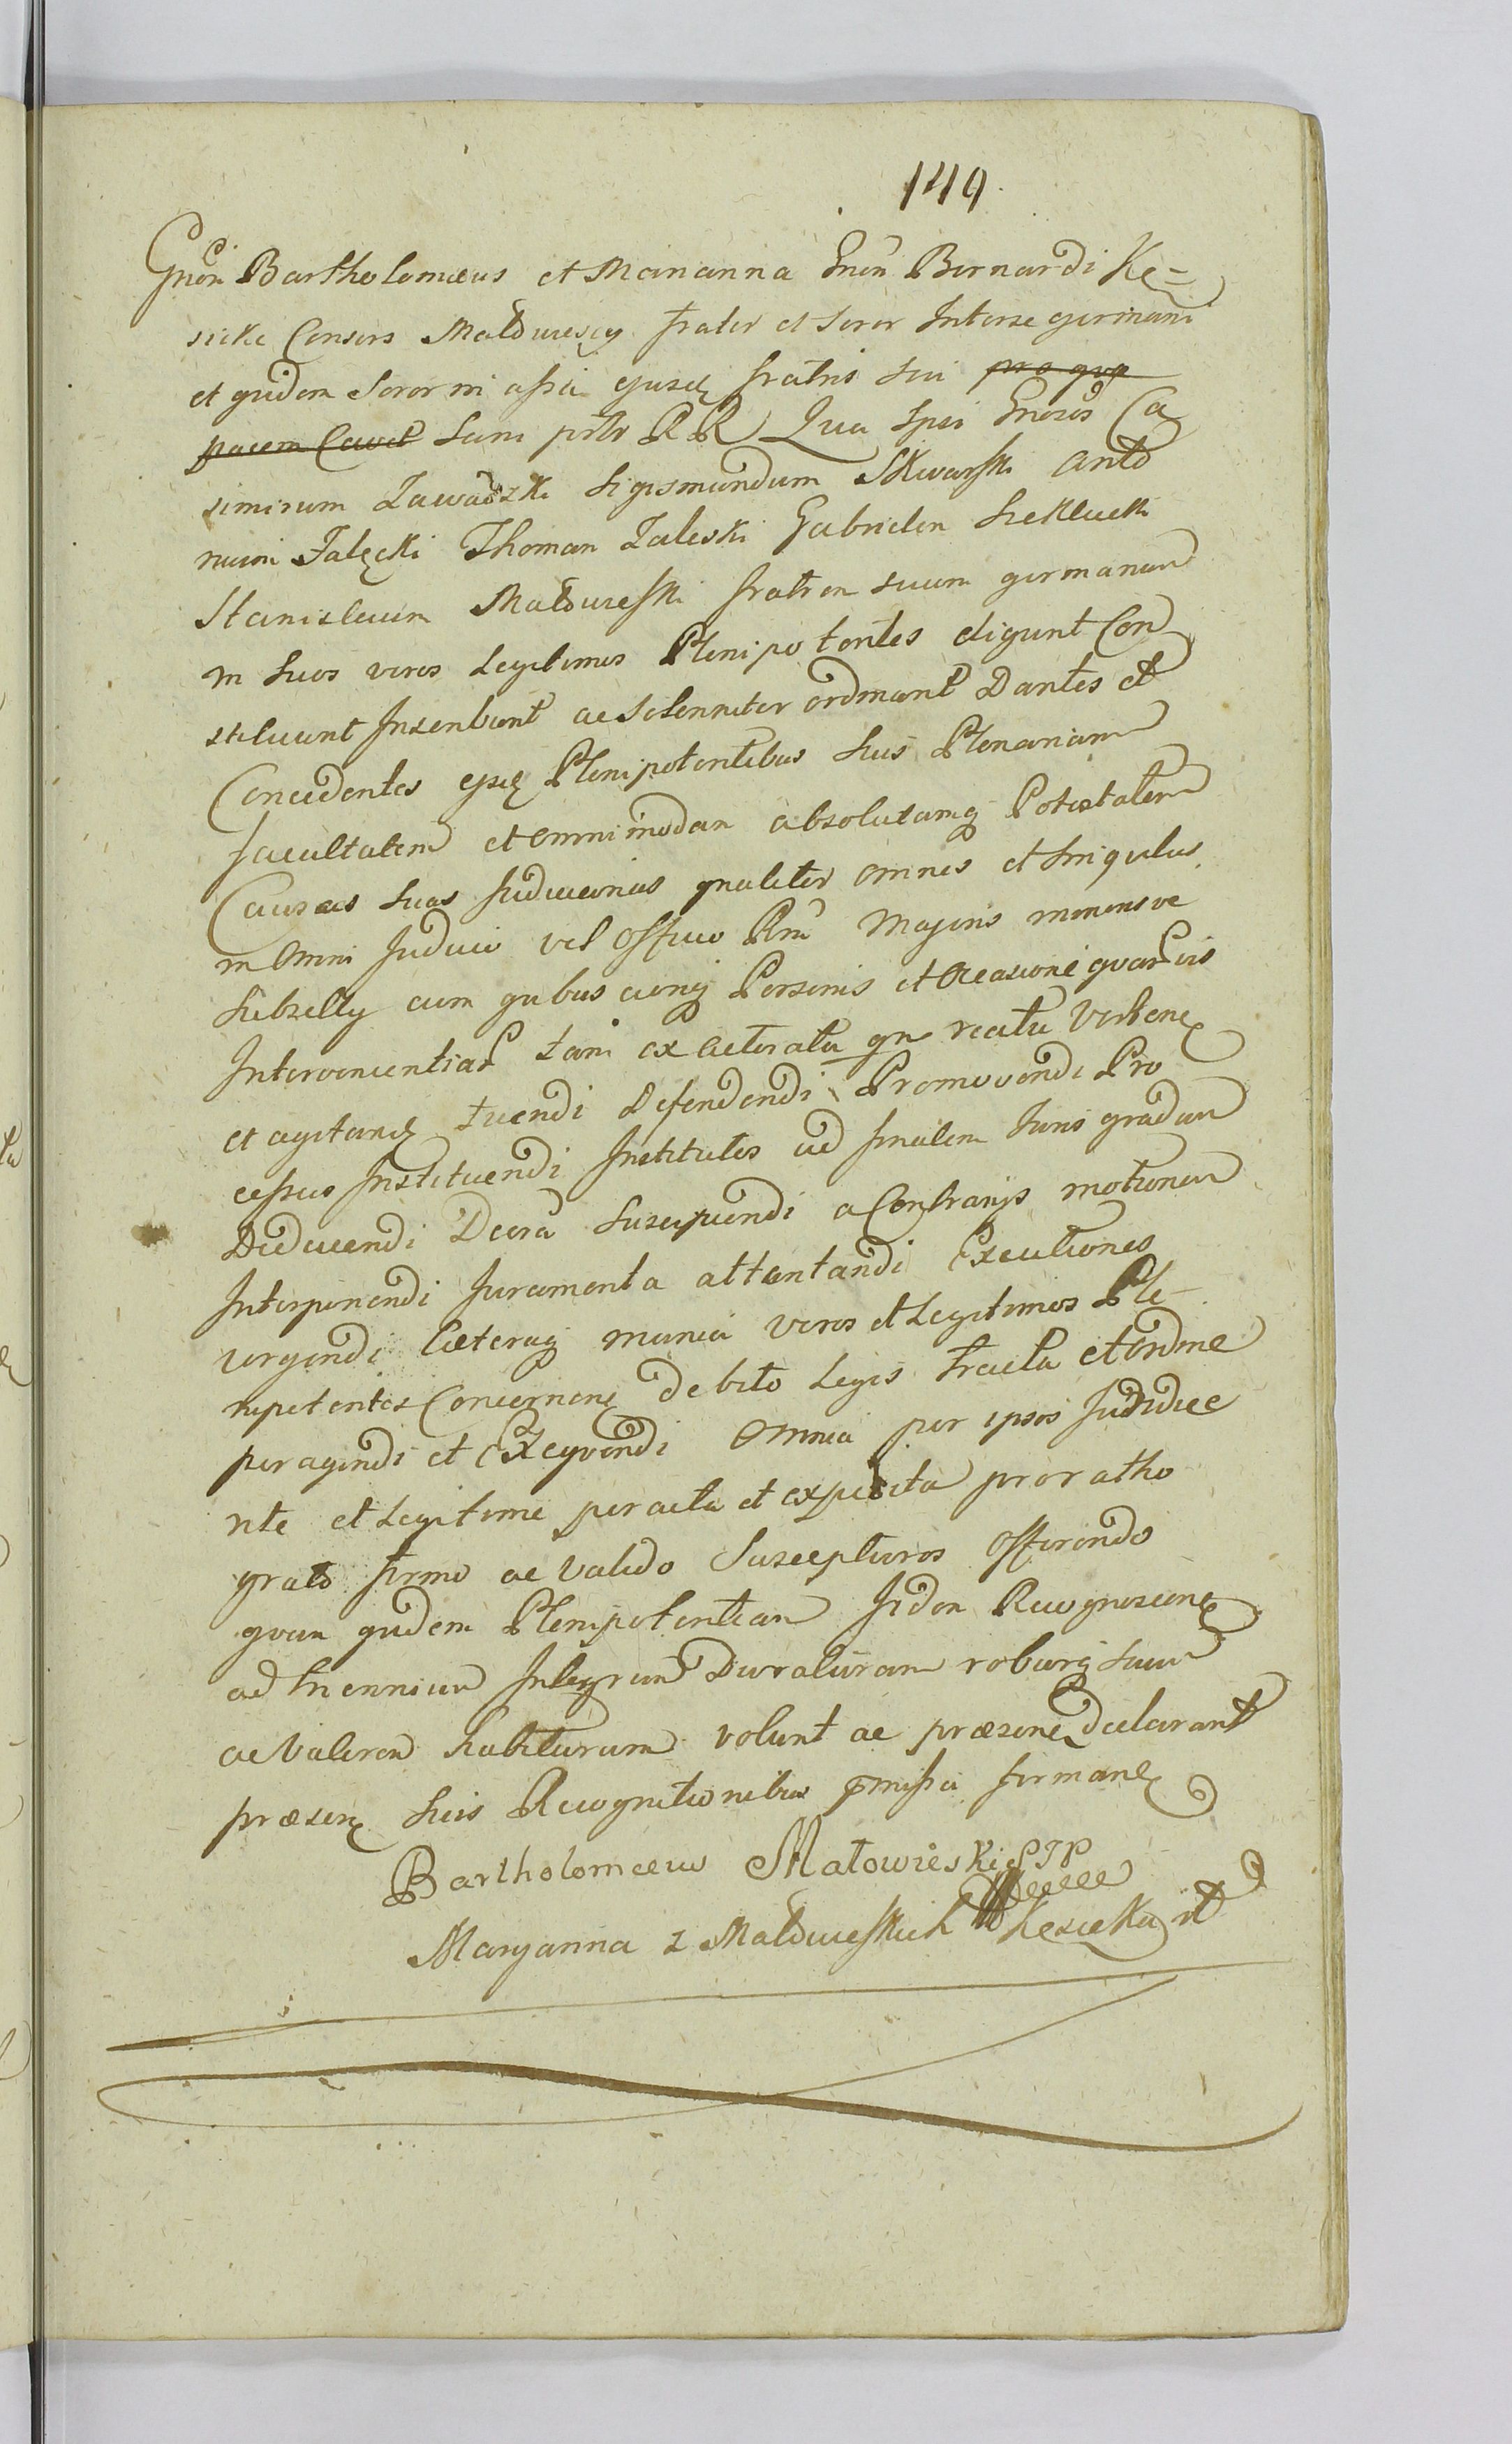 149.
Gnōri Bartholomæus et Marianna Gnōri Bernardi Ke=
sicki Consors Małowiescy frater et soror Interse germani
et quidem Soror in assia ejusq fratris sui pro quo
pacem Cavet Sani pntr RR Qua Ipsi Gnosos Ca
simirum Zawadzki Sigismundum Skwarski Anto
nium Falęcki Thomam Zaleski Gabrielem Seklucki
Stanislaum Małowieski fratrem suum germanum
in suos veros Legitimos Plenipotentes eligunt Con
stituunt Inscribunt ac solenniter ordinant Dantes et
Concedentes ejsq Plenipotentibus suis Plenariam
facultatem et omnimodam absolutamq Potestatem
Causas suas Judiciarias gnaliter omnes et singulas
in Omni Judicio vel Officio Rni Majoris minorisve
Subselly cum quibus cunq Personis et Occasione quarvis
Intervenientias tam ex Actoratu qn reatu Verbene
et agitand tuendi Defendendi Promovendi Pro
cessus Instituendi Institutos ad finalem Juris gradum
Deducendi Decra Suscipiendi a Contrarijs motionem
Interponendi Juramenta attentandi Executiones
urgendi Cæteraq munia veros et Legitimos Ple-
nipotentes Concernene debito Legis tractu et ordine
peragendi et Exeqvendi Omnia per ipsos Judidice
nte et Legitime peracta et expedita pro ratho
grato firmo ac valido Suscepturos Offerendo
qvam quidem Plenipotentiam Iidem Recognoscene
ad triennium Integrum Duraturam roburq suum
ac Valorem habituram volunt ac præsene declarant
præsene suis Recognitionibus pmissa firmane
Bartholomæus Małowieski SJP
Maryanna z Małowieskich Kesicka